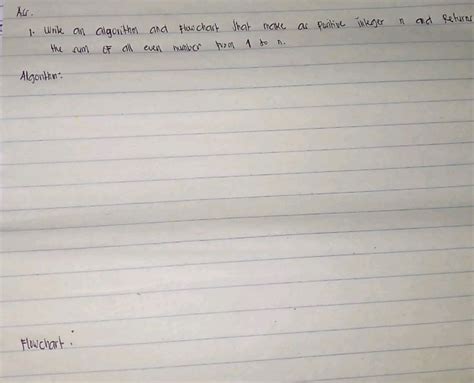 1. Write an algorithm and flowchart that make as positive integer n and Returns
the sum of all even number from 1 to n.
Algorithm:
Flowchart: